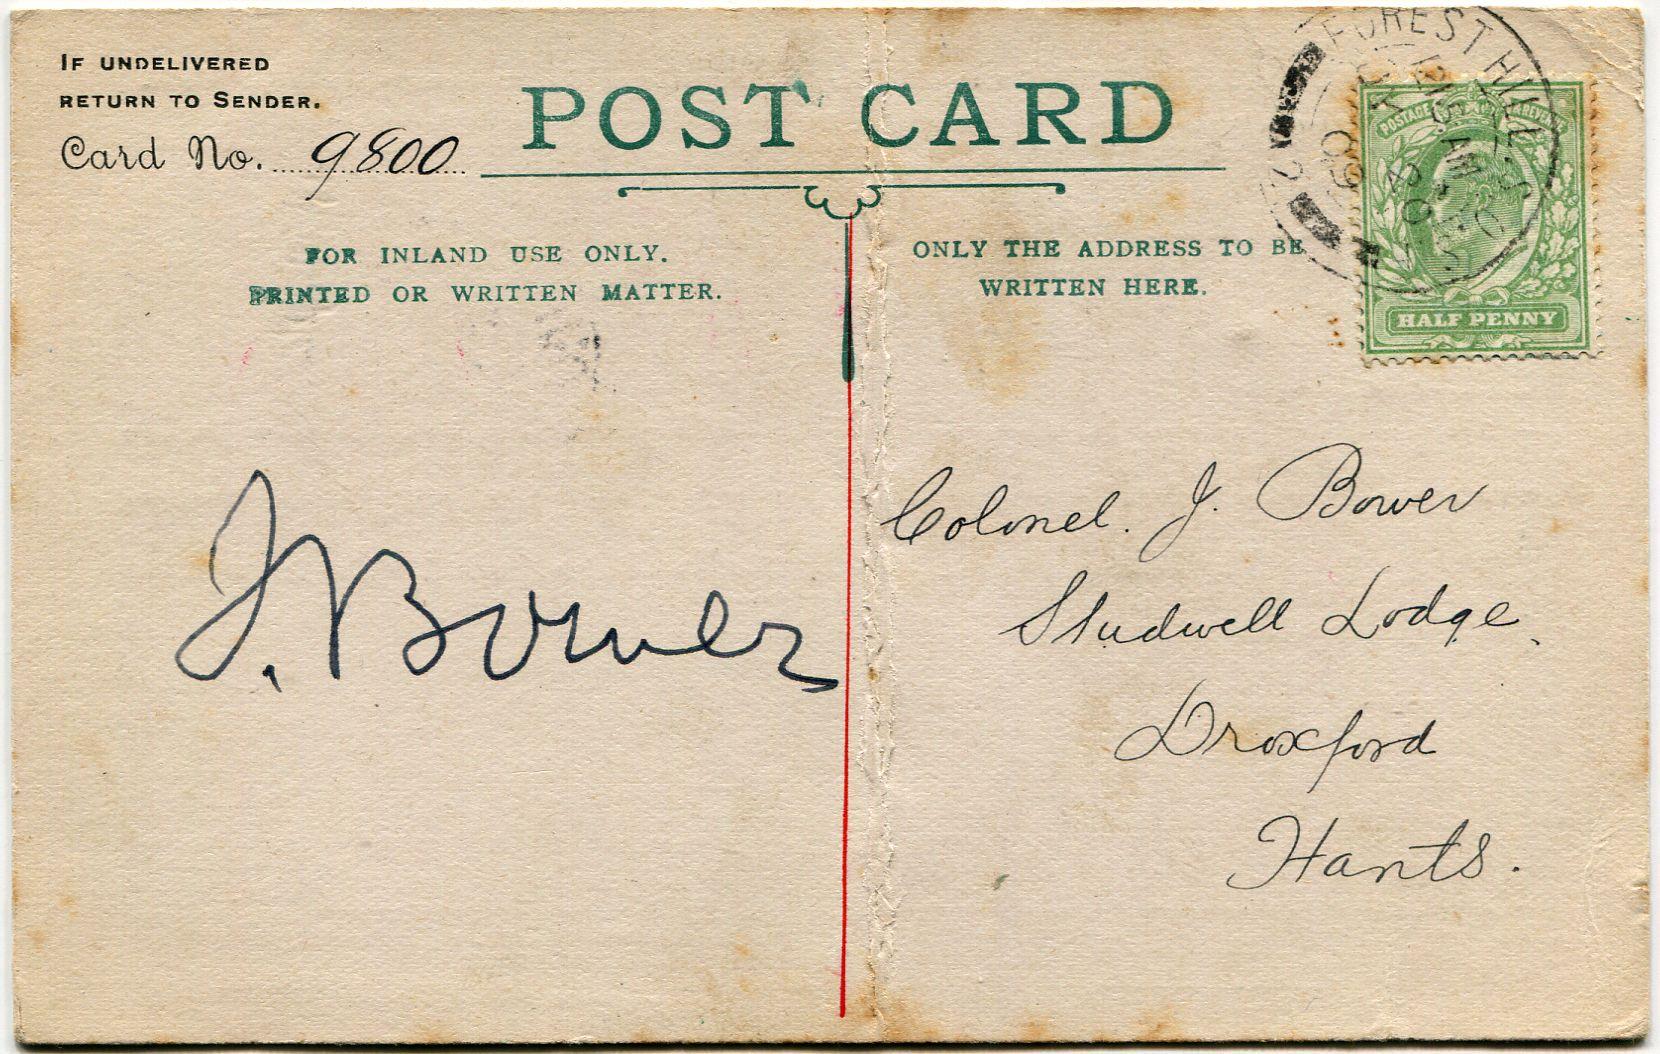 IF UNDELIVERED
RETURN TO SENDER.
Card No. 9800
POST CARD
FOR INLAND USE ONLY.
PRINTED OR WRITTEN MATTER.
ONLY THE ADDRESS TO BE
WRITTEN HERE.
FOREST HILL S.O.
POSTAGE REVENUE
HALF PENNY
J. Bower
Colonel. J. Bower
Studwell Lodge.
Droxford
Hants.